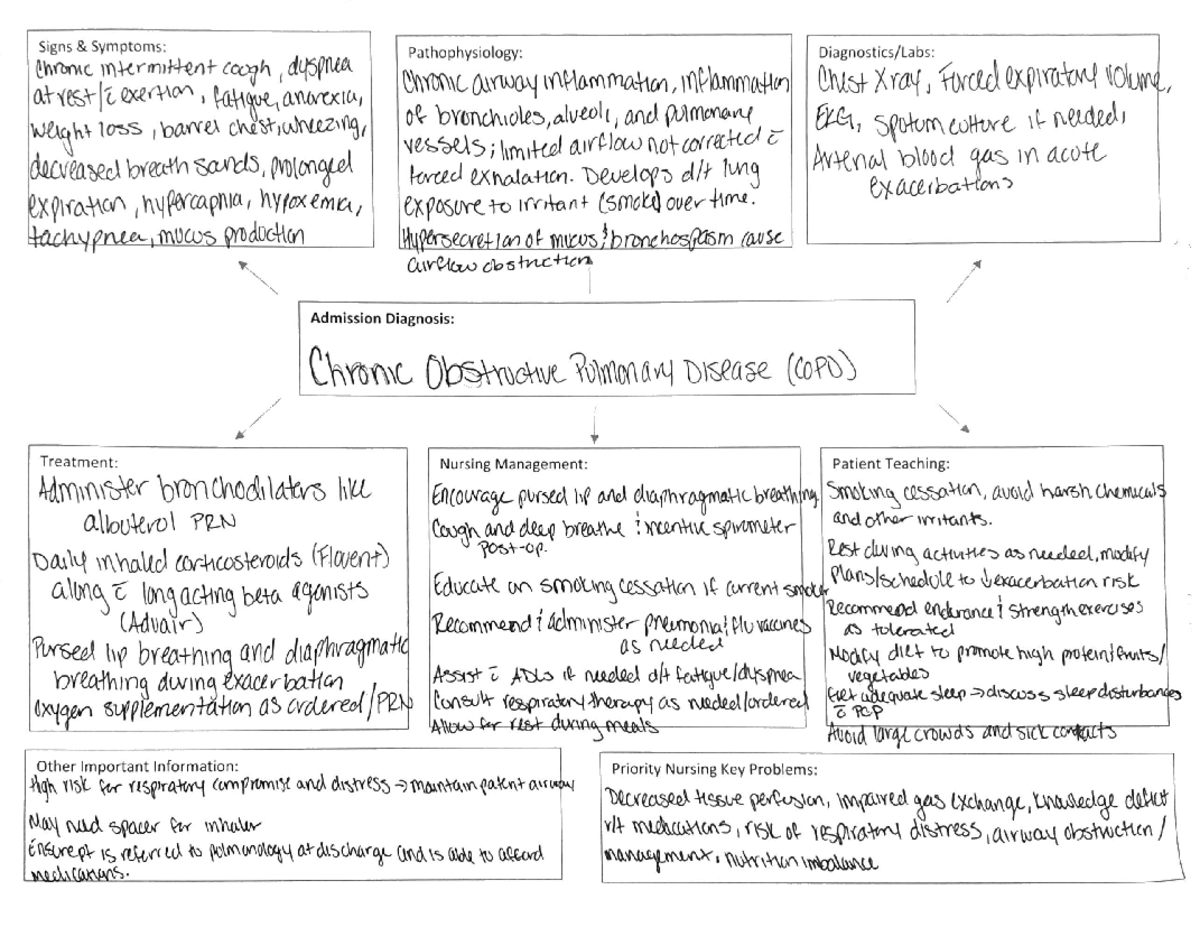 Signs & Symptoms:
Chronic intermittent cough, dyspnea
at rest/c̄ exertion, fatigue, anorexia,
weight loss, barrel chest, wheezing,
decreased breath sands, prolonged
expiration, hypercapnia, hypoxemia,
tachypnea, mucus production
Pathophysiology:
Chronic airway inflammation, inflammation
of bronchioles, alveoli, and pulmonary
vessels; limited airflow not corrected c̄
forced exhalation. Develops d/t lung
exposure to irritant (smoke) over time.
Hypersecretion of mucus & bronchospasm cause
airflow obstruction
Diagnostics/Labs:
Chest Xray, Forced expiratory volume,
EKG, sputum culture if needed,
Arterial blood gas in acute
exacerbations
Admission Diagnosis:
Chronic Obstructive Pulmonary Disease (COPD)
Treatment:
Administer bronchodilators like
albuterol PRN
Daily inhaled corticosteroids (Flovent)
along c̄ long acting beta agonists
(Advair)
Pursed lip breathing and diaphragmatic
breathing during exacerbation
Oxygen supplementation as ordered/PRN
Nursing Management:
Encourage pursed lip and diaphragmatic breathing
Cough and deep breathe & incentive spirometer
post-op.
Educate on smoking cessation if current smoker
Recommend & administer pneumonia & flu vaccines
as needed
Assist c̄ ADLs if needed d/t fatigue/dyspnea
Consult respiratory therapy as needed/ordered
Allow for rest during meals
Patient Teaching:
Smoking cessation, avoid harsh chemicals
and other irritants.
Rest during activities as needed, modify
plans/schedule to ↓ exacerbation risk
Recommend endurance & strength exercises
as tolerated
Modify diet to promote high protein/fruits/
vegetables
Get adequate sleep → discuss sleep disturbances
c̄ PCP
Avoid large crowds and sick contacts
Other Important Information:
High risk for respiratory compromise and distress → maintain patent airway
May need spacer for inhaler
Ensure pt is referred to pulmonology at discharge and is able to afford
medications.
Priority Nursing Key Problems:
Decreased tissue perfusion, impaired gas exchange, knowledge deficit
r/t medications, risk of respiratory distress, airway obstruction/
management, nutrition imbalance